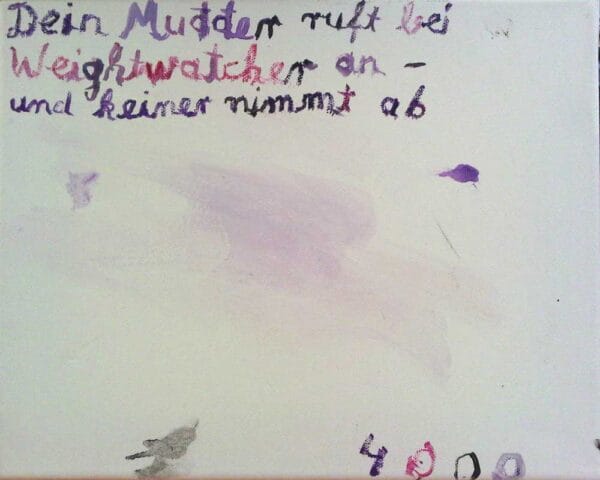 Dein Mudder ruft bei
Weightwatcher an -
und keiner nimmt ab
4000